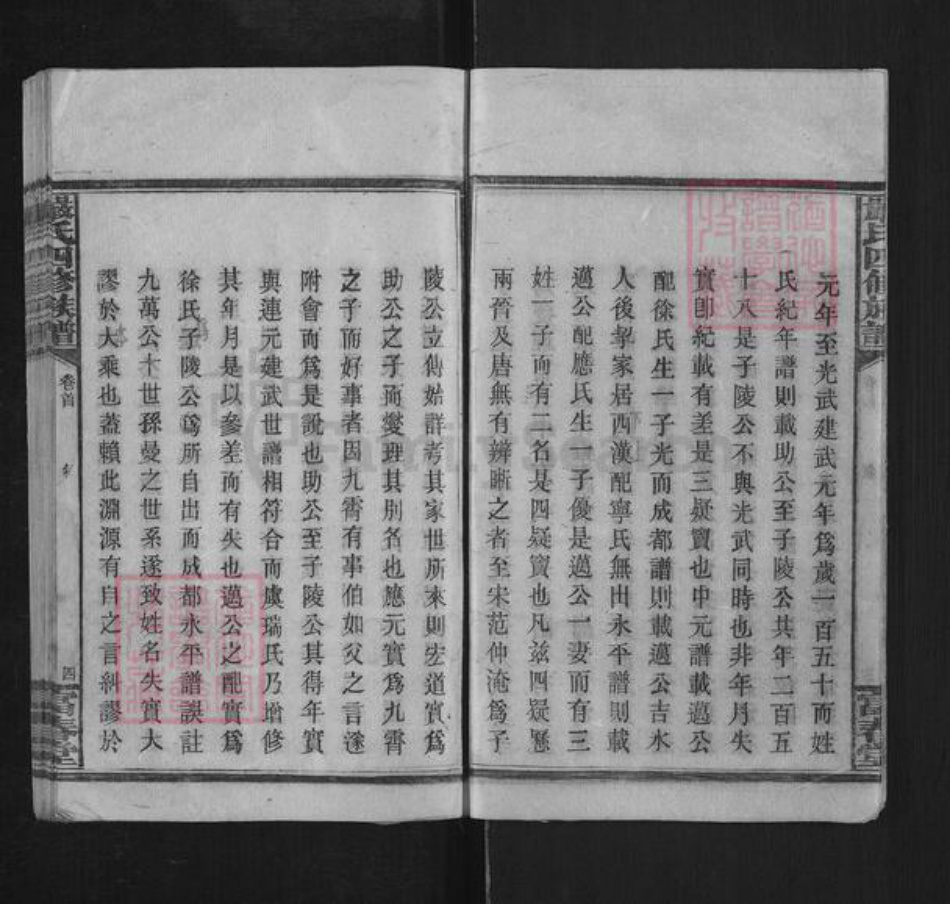 元年至光武建武元年爲歲一百五十而姓
氏紀年譜則載助公至子陵公共年二百五
十八是子陵公不與光武同時也非年月失
實卽紀載有差是三疑竇也中元譜載邁公
配徐氏生一子光而成都譜則載邁公吉水
人後挈家居西漢配寧氏無出永平譜則載
邁公配應氏生一子優是邁公一妻而有三
姓一子而有二名是四疑竇也凡兹四疑懸
兩晉及唐無有辨晰之者至宋范仲淹爲子
陵公立傳始詳考其家世所來則宏道實爲
助公之子而燮理其別名也應元實爲九霄
之子而好事者因九霄有事伯如父之言遂
附會而爲是說也助公至子陵公其得年實
與連元建武世譜相符合而虞瑞氏乃增修
其年月是以參差而有失也邁公之配實爲
徐氏子陵公爲所自出而成都永平譜誤註
九萬公十世孫曼之世系遂致姓名失實大
謬於大乘也蓋賴此淵源有自之言糾謬於
嚴氏四修族譜
卷首
四
富春堂
嚴氏四修族譜
富春堂
FamilySearch